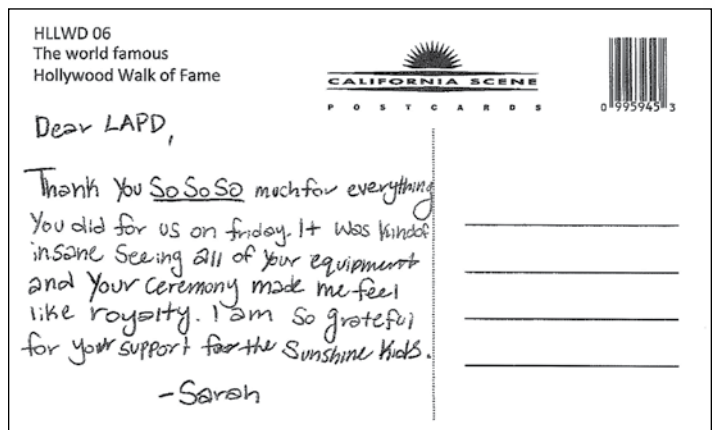 HLLWD 06
The world famous
Hollywood Walk of Fame
CALIFORNIA SCENE
POSTCARDS
0 995945 3
Dear LAPD,
Thank You So So So much for everything
You did for us on friday. It was kindof
insane seeing all of your equipment
and Your Ceremony made me feel
like royalty. I am so grateful
for your support for the Sunshine Kids.
-Sarah